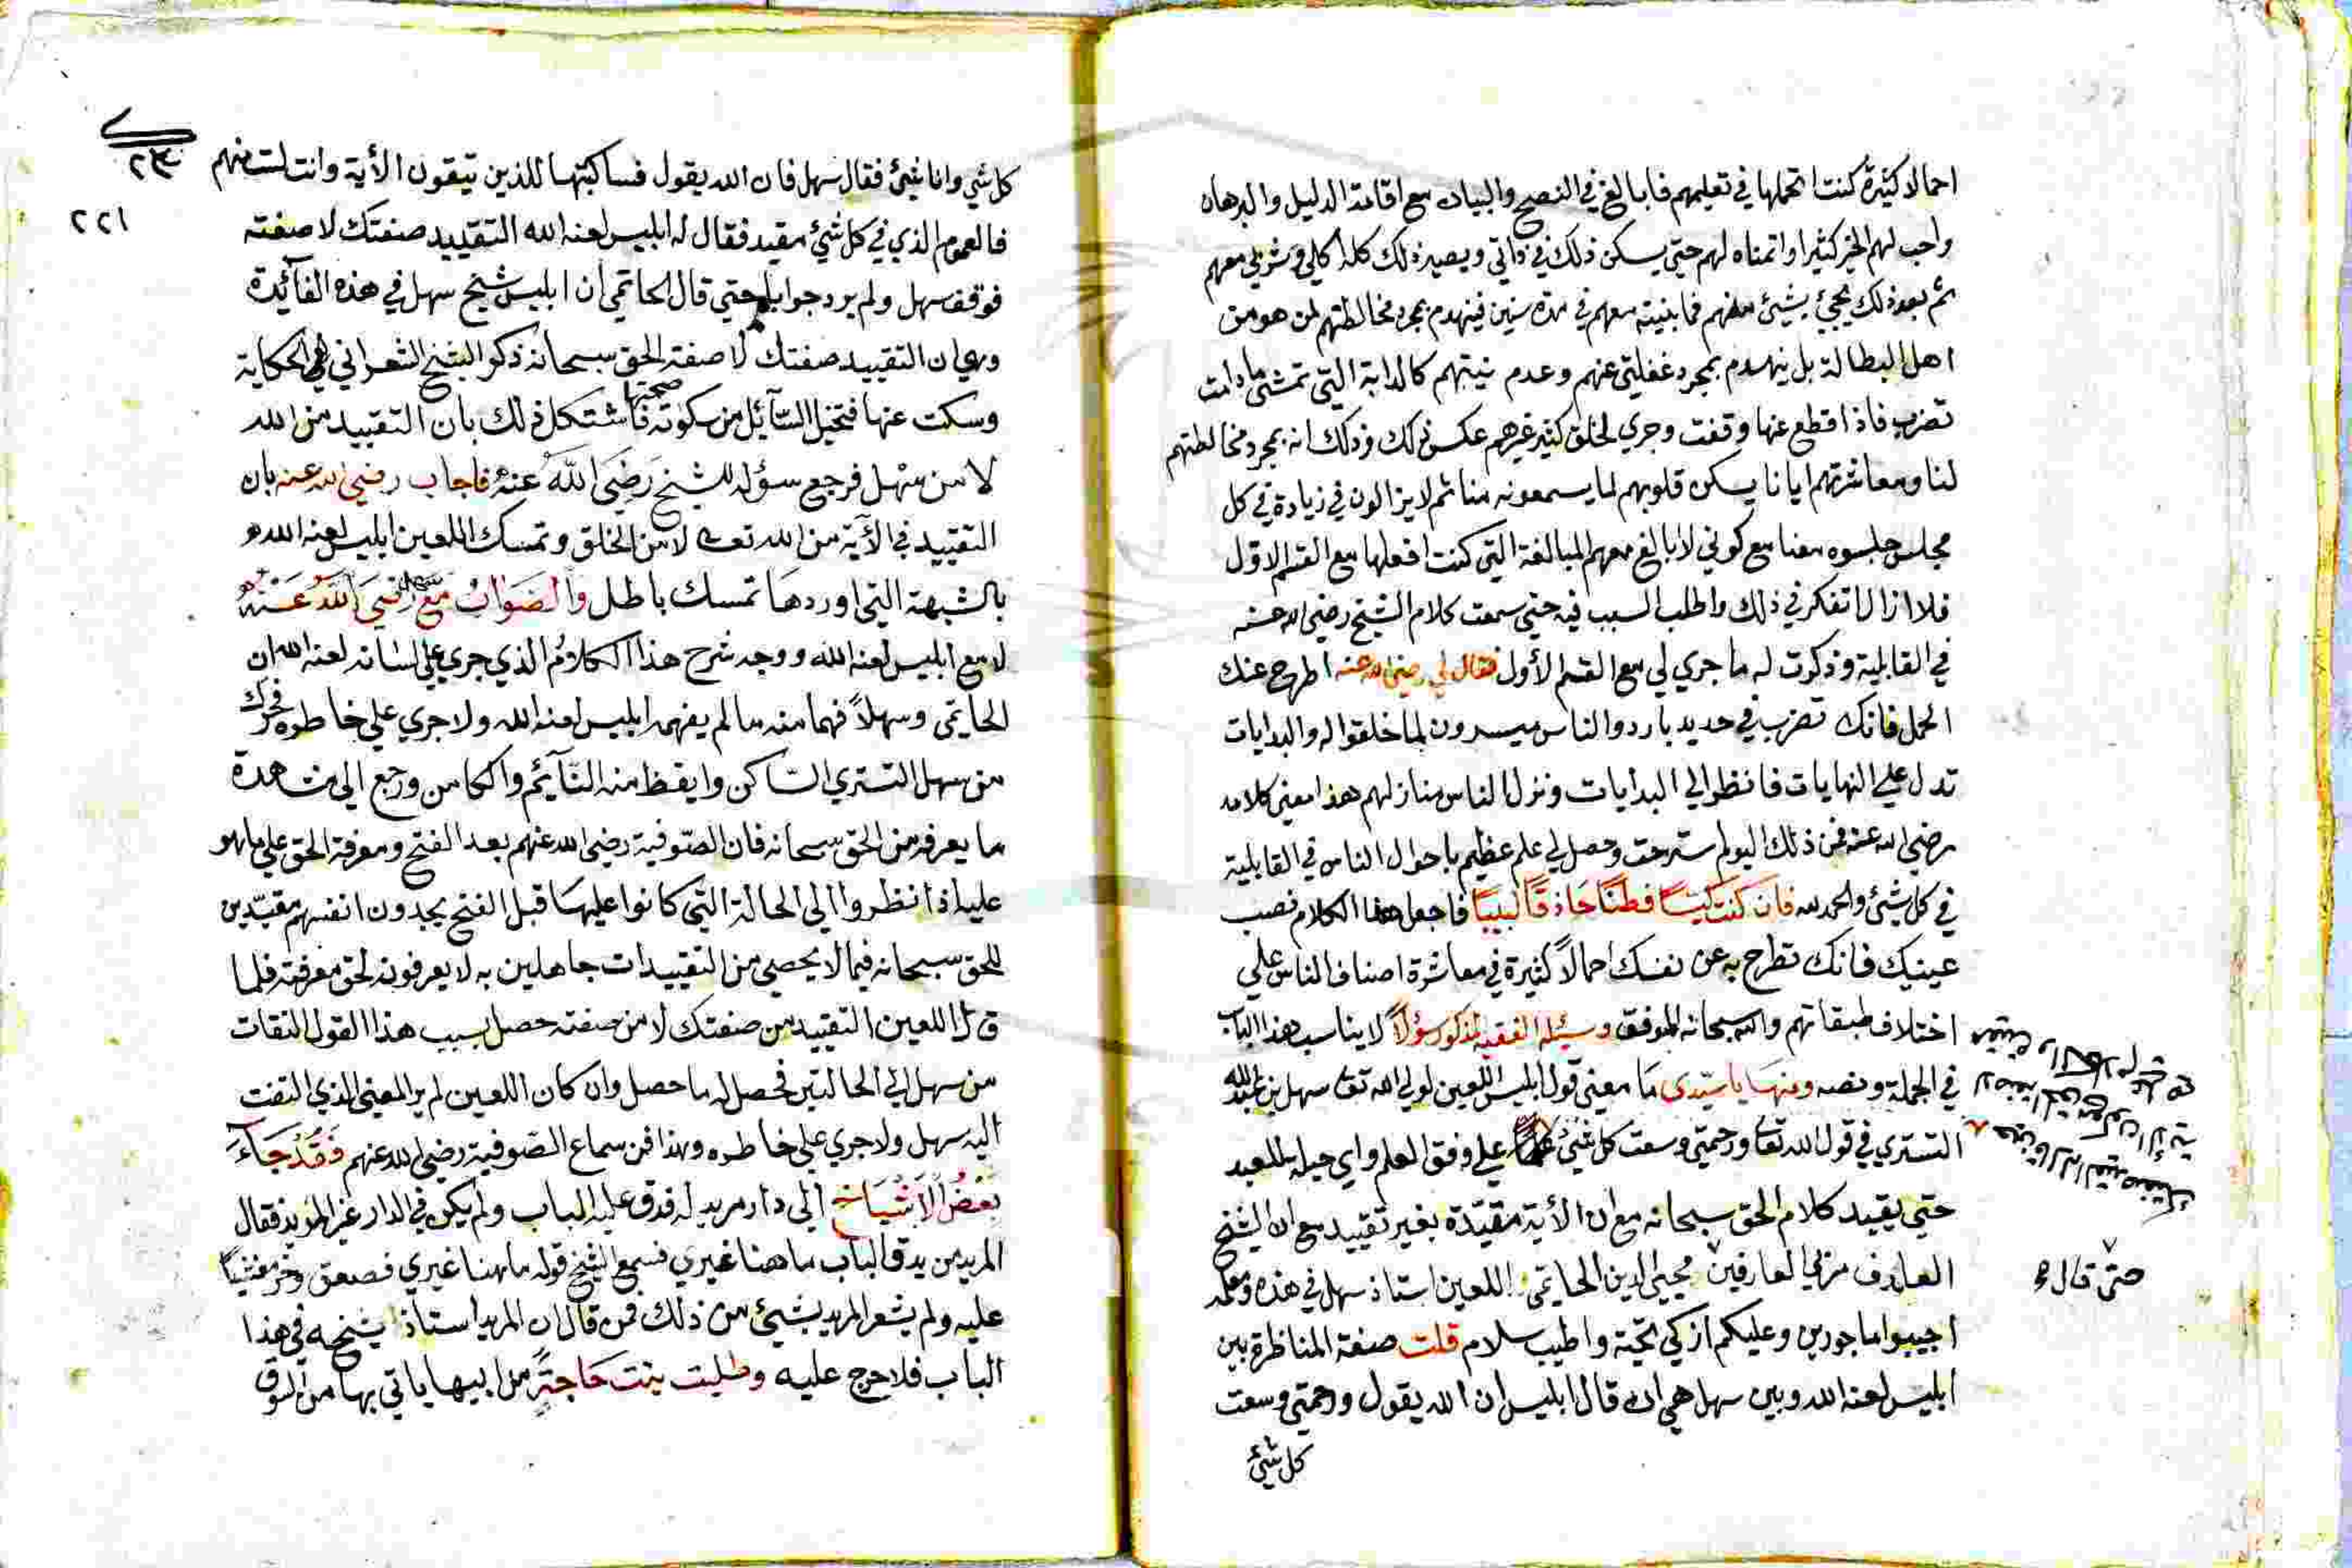 احمالا كثيرة كنت اتحملها في تعليمهم فابالغ في النصح والبيان مع اقامة الدليل والبرهان
واحب لهم الخير كثيرا واتمناه لهم حتي يسكن ذلك في ذاتي ويصير ذلك كله اكلي وشربي معهم
ثم بعد ذلك يجيئ بشيئ منهم فما بنيته معهم في مدة سنين فينهدم بمجرد مخالطتهم لمن هو من
اهل البطالة بل ينهدم بمجرد غفلتي عنهم وعدم نيتهم كالدابة التي تمشي ما دامت
تضرب فاذا قطع عنها وقفت وجري لخلق كثير غيرهم عكس ذلك وذلك انه بمجرد مخالطتهم
لنا ومعاشرتهم ايانا يسكن قلوبهم لما يسمعونه منا ثم لا يزالون في زيادة في كل
مجلس جلسوه معنا مع كوني لا ابالغ معهم المبالغة التي كنت افعلها مع القسم الاول
فلا ازال اتفكر في ذلك واطلب السبب فيه حتي سمعت كلام الشيخ رضي الله عنه
في القابلية وذكرت له ما جري لي مع القسم الأول فقال لي رضي الله عنه اطرح عنك
الحمل فانك تضرب في حديد بارد والناس ميسرون لما خلقوا له والبدايات
تدل علي النهايات فانظر الي البدايات ونزل الناس منازلهم هذا معني كلامه
رضي الله عنه فمن ذلك اليوم استرحت وحصل لي علم عظيم باحوال الناس في القابلية
في كل شيئ والحمد لله فان كنت كيّسًا فطنًا حاذقًا لبيبًا فاجعل هذا الكلام نصب
عينيك فانك تطرح به عن نفسك احمالاً كثيرة في معاشرة اصناف الناس علي
اختلاف طبقاتهم والله سبحانه الموفق وسئله الفقيه المذكور سؤالاً لا يناسب هذا الباب
في الجملة ونصه ومنها يا سيّدي ما معني قول ابليس اللعين لولي الله تعا سهل بن عبد الله
التستري في قول الله تعا ورحمتي وسعت كل شيئ علي وفق العلم واي حيلة للعبد
حتي يقيد كلام الحق سبحانه مع ان الأية مقيّدة بغير تقييد مع ان الشيخ
العارف مربي العارفين محيي الدين الحاتمي اللعين استاذ سهل في هذه
حتّي قال
اجيبوا ماجورين وعليكم ازكي تحية واطيب سلام قلت صفة المناظرة بين
ابليس لعنه الله وبين سهل هي ان قال ابليس ان الله يقول ورحمتي وسعت
كل شيئ
٢٣
٢٢١
كل شي وانا شيئ فقال سهل فان الله يقول فساكتبها للذين يتقون الأية وانت لست منهم
فالعموم الذي في كل شيئ مقيد فقال له ابليس لعنه الله التقييد صفتك لا صفته
فوقف سهل ولم يرد جوابا حتي قال الحاتمي ان ابليس شيخ سهل في هذه الفآئدة
وهي ان التقييد صفتك لا صفة الحق سبحانه ذكر الشيخ الشعراني الحكاية
وسكت عنها فتخيل السآئل من سكوته صحتها فاشتكل ذلك بان التقييد من الله
لا من سهل فرجع سؤله للشيخ رَضِيَ اللّهَ عَنْهُ فاجاب رضي الله عنه بان
التقييد في الأية من الله تعه لا من الخلق وتمسك اللعين ابليس لعنه الله
بالشبهة التي اوردها تمسك باطل والصَوَابُ مَعَ سهل رضي اللّه عَنْهُ
لا مع ابليس لعنه الله ووجه شرح هذا الكلام الذي جري علي لسانه لعنه الله ان
الحاتمي وسهلاً فهما منه ما لم يفهمه ابليس لعنه الله ولا جري علي خاطره فحرك
من سهل التستري الساكن وايقظ منه النآئم والكامن ورجع الي مشاهدة
ما يعرفه من الحق سبحانه فان الصّوفية رضي الله عنهم بعد الفتح ومعرفة الحق علي ما هو
عليه اذا نظروا الي الحالة التي كانوا عليها قبل الفتح يجدون انفسهم مقيّدين
للحق سبحانه فيما لا يحصي من التقييدات جاهلين به لا يعرفونه لحق معرفته فلما
قال اللعين التقييد من صفتك لا من صفته حصل بسبب هذا القول التفات
من سهل الي الحالتين فحصل له ما حصل وان كان اللعين لم ير المعني الذي التفت
اليه سهل ولا جري علي خاطره وهذا من سماع الصّوفية رضي الله عنهم فَقَدْ جَآءَ
بَعْضُ الأَشْيَاخ الي دار مريد له فدق عليه الباب ولم يكن في الدار غير المريد فقال
المريد من يدق الباب ما هنا غيري فسمع الشيخ قوله ما هنا غيري فصعق وخرّ مغشيّاً
عليه ولم يشعر المريد بشيئ من ذلك فمن قال ان المريد استاذ شيخه في هذا
الباب فلا حرج عليه وطلبت بنت حَاجَةً من ابيها ياتي بها من السوق